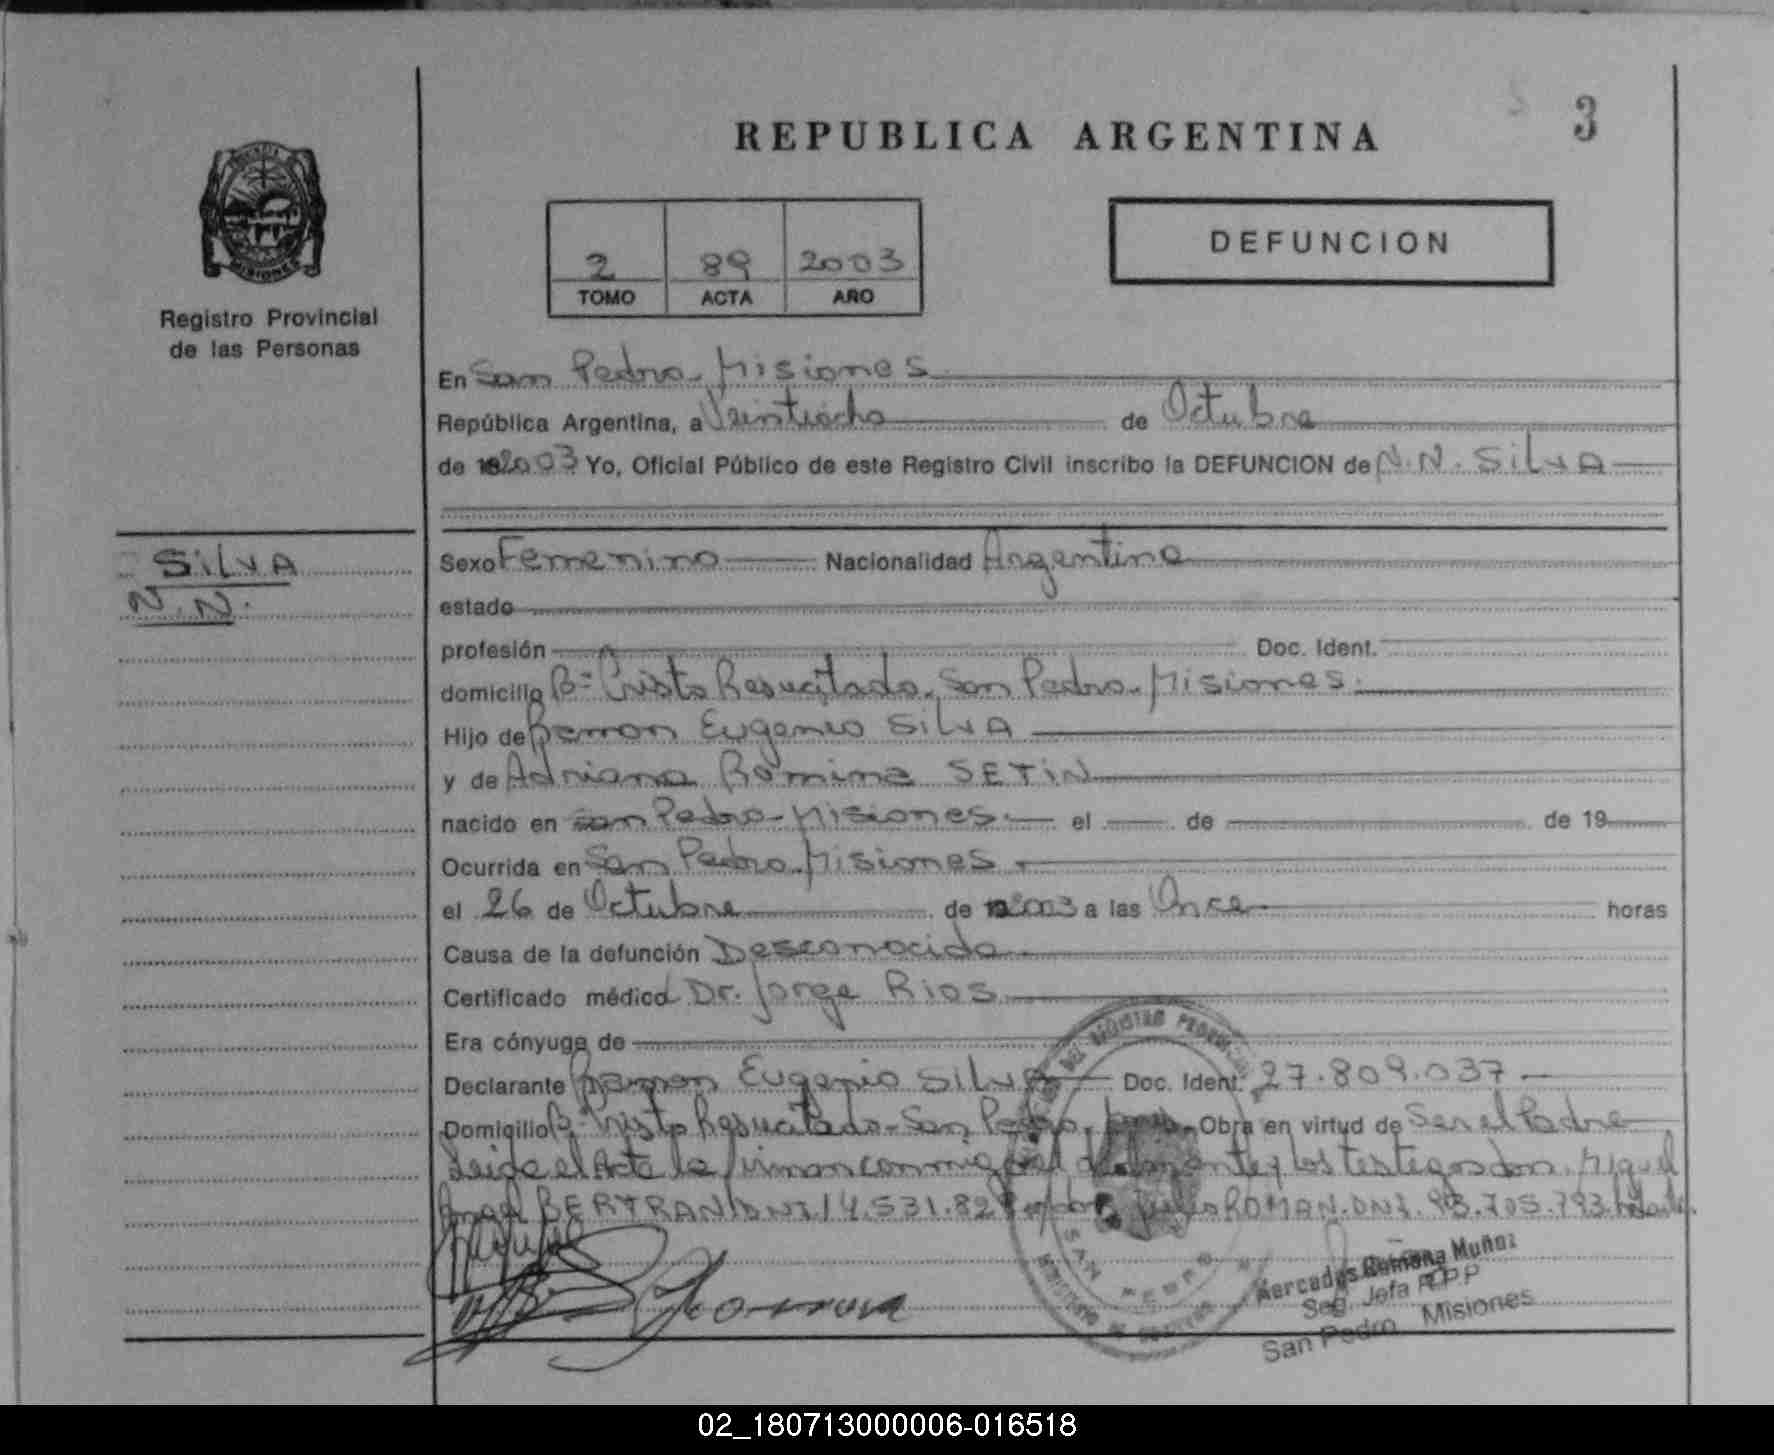 3
REPUBLICA ARGENTINA
DEFUNCION
2 89 2003
TOMO ACTA AÑO
MISIONES
Registro Provincial
de las Personas
En San Pedro - Misiones
República Argentina, a Veintiocho de Octubre
de 2003 Yo, Oficial Público de este Registro Civil inscribo la DEFUNCION de N.N. SilvA
SilvA
N.N.
Sexo Femenino Nacionalidad Argentina
estado
profesión Doc. Ident.
domicilio Bº Cristo Resucitado. San Pedro. Misiones.
Hijo de Ramon Eugenio SilvA
y de Adriana Romina SETIN
nacido en San Pedro - Misiones. el de de 19
Ocurrida en San Pedro. Misiones.
el 26 de Octubre de 2003 a las Once horas
Causa de la defunción Desconocida
Certificado médico Dr. Jorge Rios
Era cónyuge de
Declarante Ramon Eugenio SilvA Doc. Ident. 27.809.037
Domicilio Bº Cristo Resucitado - San Pedro. Obra en virtud de Ser el Padre
Leida el Acta la firman conmigo el y los testigos don. Miguel
Angel BERTRAN DNI 14.531.82 ROMAN. DNI. 93.705.793
SAN PEDRO
Mercedes Ramona Muñoz
Seg. Jefa R.P.P
San Pedro Misiones
02_180713000006-016518